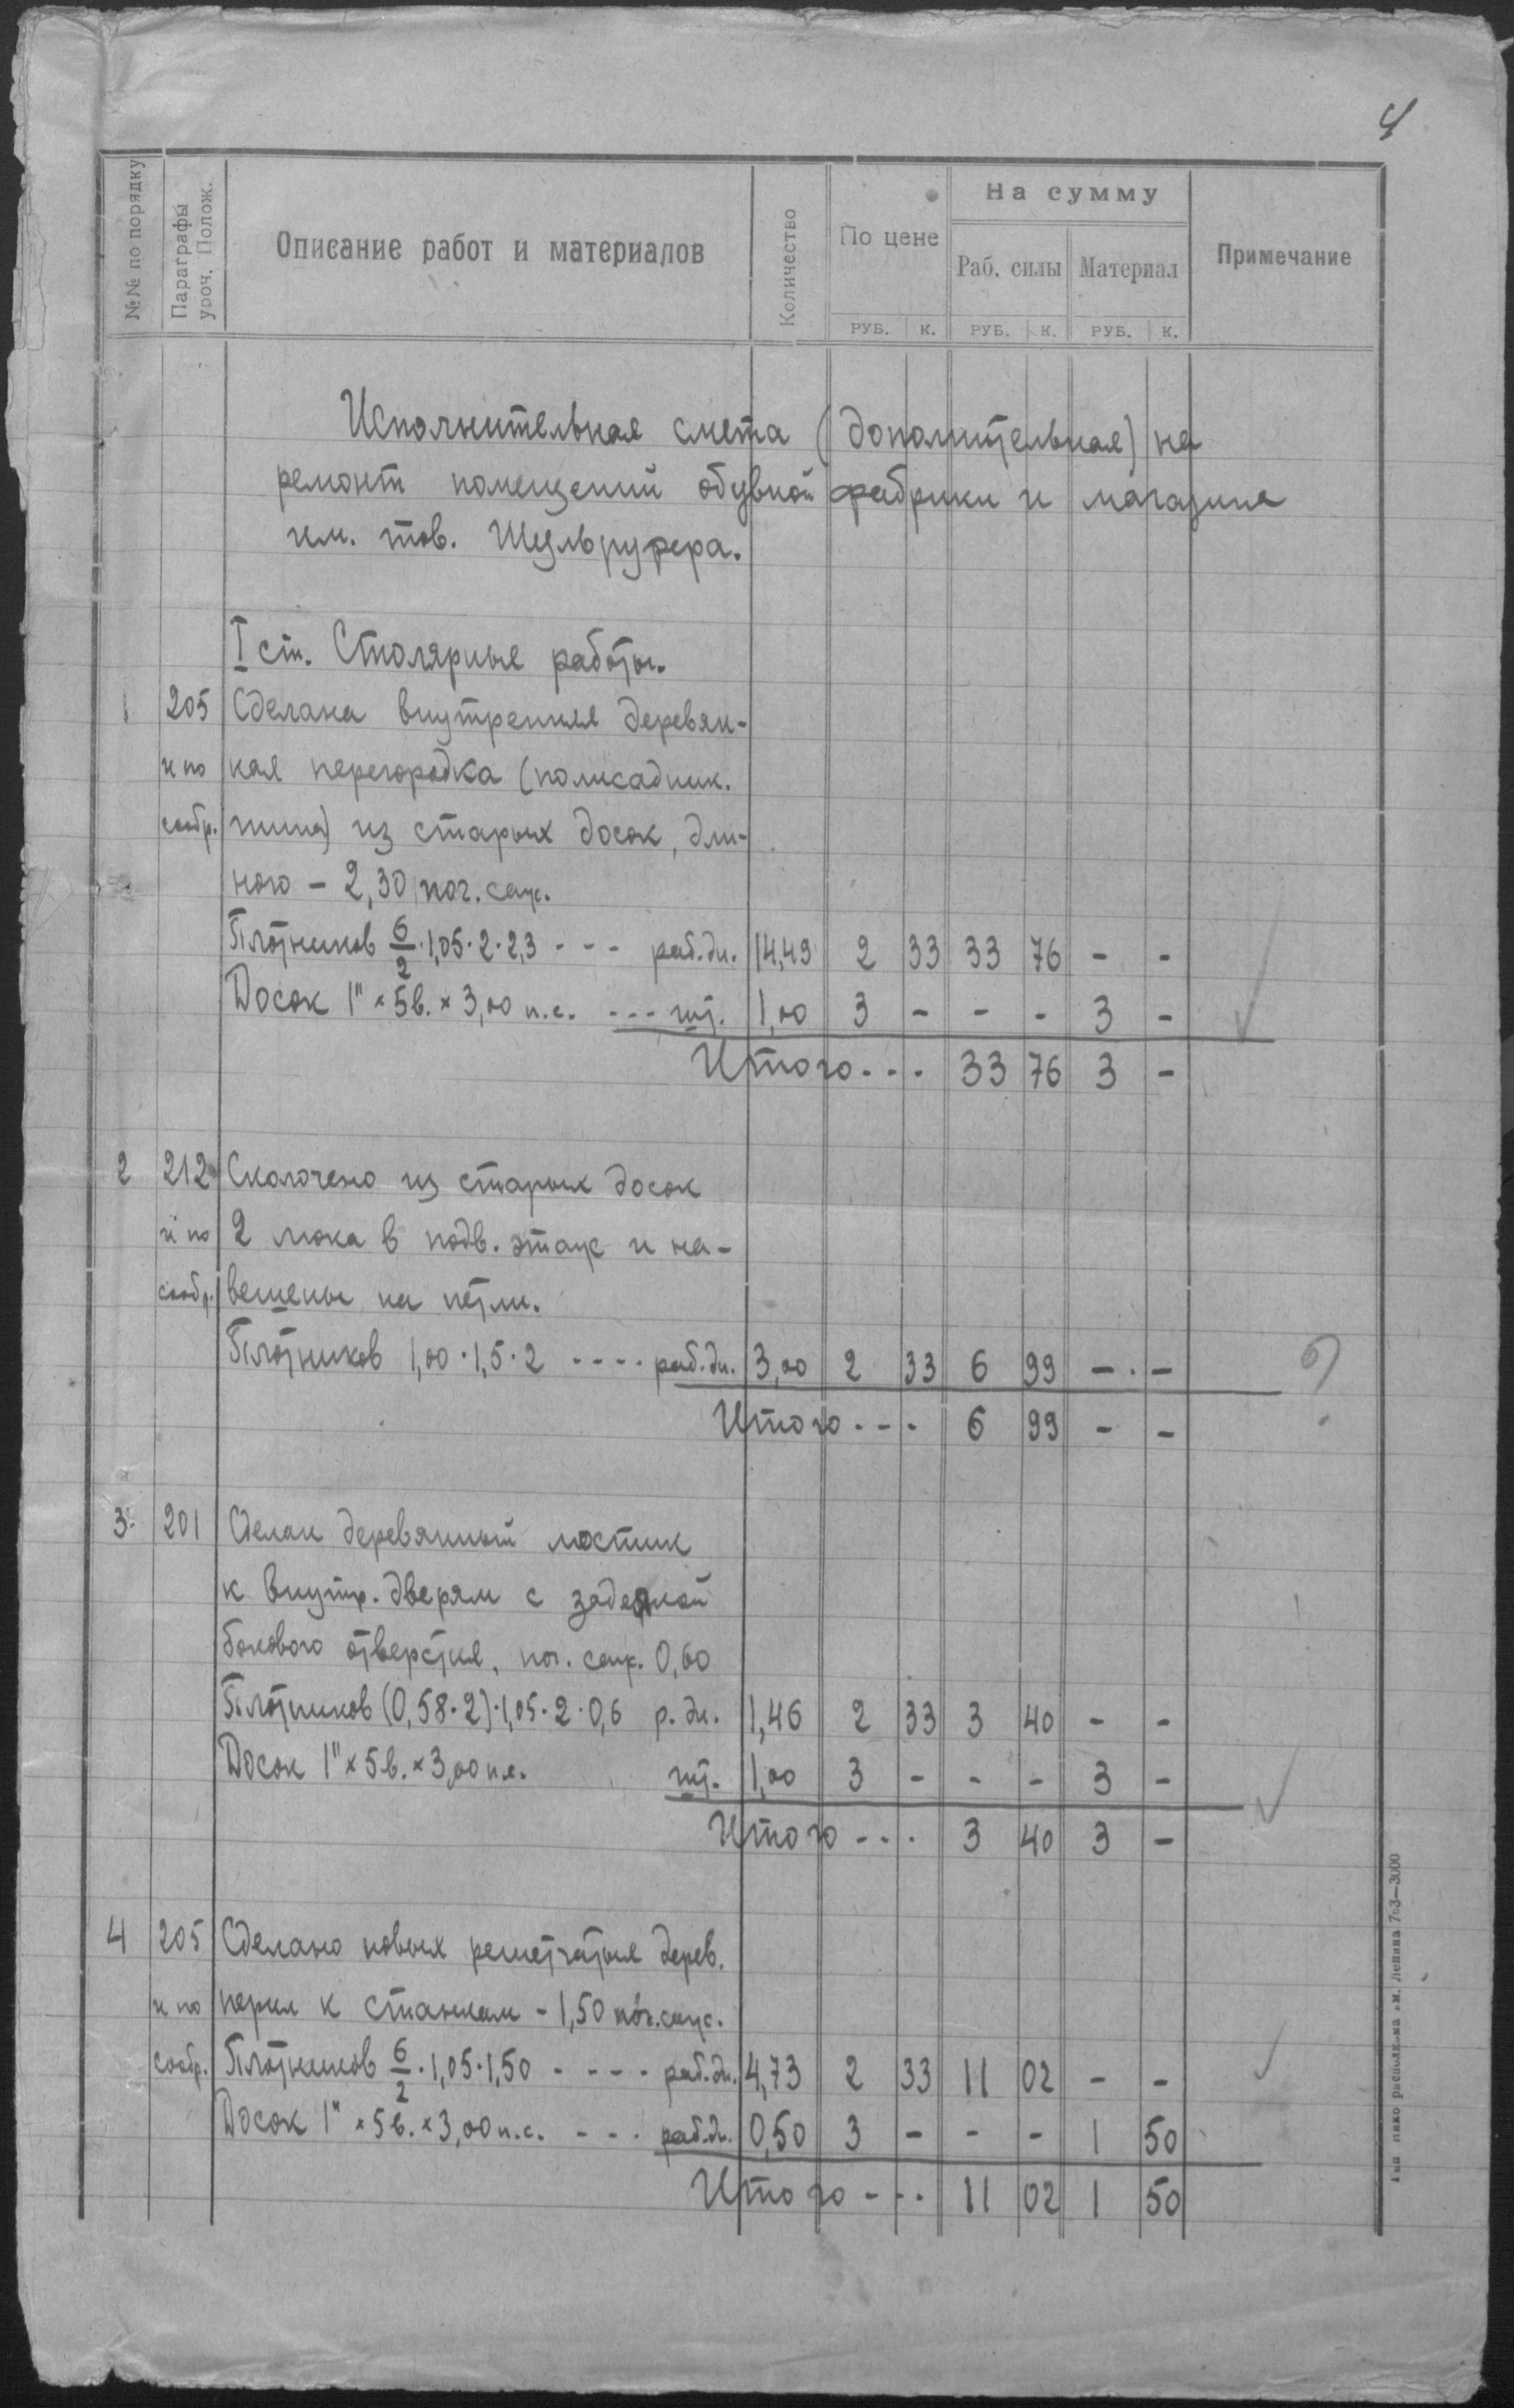 4
№№ по порядку
Параграфы уроч. Полож.
Описание работ и материалов
Количество
По цене
На сумму
Раб. силы Материал
Примечание
РУБ. К. РУБ. К. РУБ. К.
Исполнительная смета (дополнительная) на
ремонт помещений обувной фабрики и магазина
им. тов.
I ст. Столярные работы.
1 205 Сделана внутренняя деревян-
и по ная перегородка (полисадник.
сообр. типа) из старых досок, дли-
ною - 2,30 пог. саж.
Плотников 6/2 · 1,05 · 2 · 2,3 - - - раб. дн. 14,49 2 33 33 76 - -
Досок 1" × 5 в. × 3,00 п. с. - - - шт. 1,00 3 - - - 3 -
Итого - - - 33 76 3 -
2 212 Сколочено из старых досок
и по 2 люка в подв. этаж и на-
сообр. вешены на петли.
Плотников 1,00 · 1,5 · 2 - - - - раб. дн. 3,00 2 33 6 99 - - ?
Итого - - - 6 99 - -
3. 201 Сделан деревянный мостик
к внутр. дверям с заделкой
бокового отверстия, пог. саж. 0,60
Плотников (0,58 · 2) · 1,05 · 2 · 0,6 р. дн. 1,46 2 33 3 40 - -
Досок 1" × 5 в. × 3,00 п. с. шт. 1,00 3 - - - 3 -
Итого - - - 3 40 3 -
4 205 Сделано новых решетчатые дерев.
и по перил к станкам - 1,50 пог. саж.
сообр. Плотников 6/2 · 1,05 · 1,50 - - - - раб. дн. 4,73 2 33 11 02 - -
Досок 1" × 5 в. × 3,00 п. с. - - - раб. дн. 0,50 3 - - - 1 50
Итого - - - 11 02 1 50
Ленина 763—3000